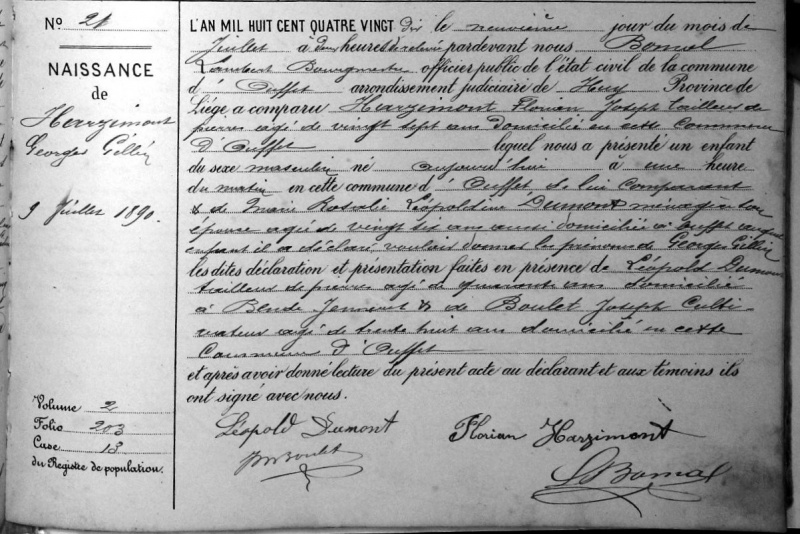 N° 21
NAISSANCE
de
Harzimont
Georges Gillin
9 Juillet 1890.
Volume 2
Folio 203
Case 13
du Registre de population.
L'AN MIL HUIT CENT QUATRE VINGT dix le neuvième jour du mois de
Juillet à deux heures de relevée pardevant nous Bomal
Lambert Bourgmestre officier public de l'état civil de la commune
d'Ouffet arrondissement judiciaire de Huy Province de
Liége, a comparu Harzimont Florian Joseph tailleur de
pierres agé de vingt sept ans domicilié en cette commune
d'Ouffet lequel nous a présenté un enfant
du sexe masculin né aujourd'hui à une heure
du matin en cette commune d'Ouffet, de lui comparant
& de Marie Rosalie Léopoldine Dumont ménagère son
épouse agée de vingt six ans aussi domiciliée à Ouffet auquel
enfant il a déclaré vouloir donner les prénoms de Georges Gillin
les dites déclaration et présentation faites en présence de Léopold Dumont
tailleur de pierres agé de quarante ans domicilié
à & de Boulet Joseph Culti-
vateur agé de trente huit ans domicilié en cette
Commune d'Ouffet
et après avoir donné lecture du présent acte au déclarant et aux témoins ils
ont signé avec nous.
Léopold Dumont
Florian Harzimont
Boulet
L Bomal